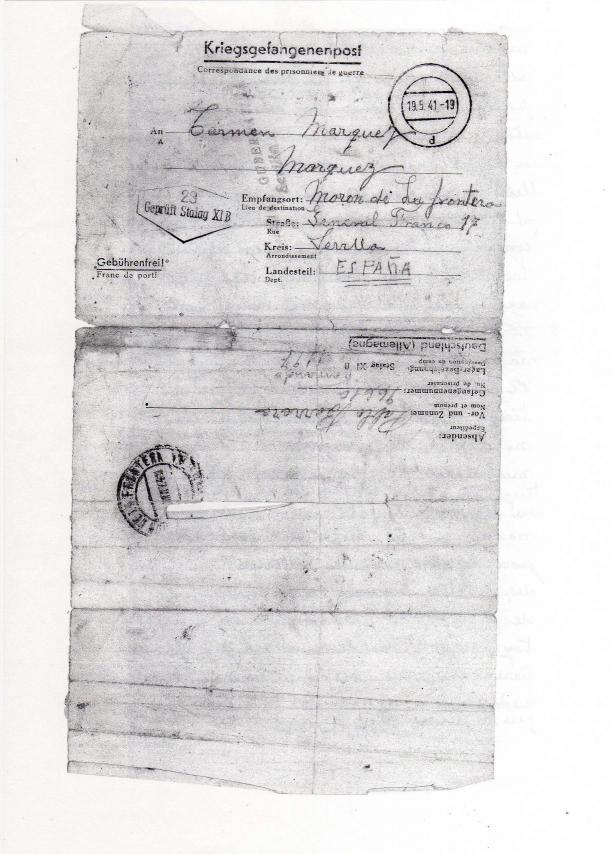 Kriegsgefangenenpost
Correspondance des prisonniers de guerre
19.5.41-19
d
An Carmen Marquez
A
Marquez
23
Geprüft Stalag XI B
Empfangsort: Moron de La frontera
Lieu de destination
Straße: General Franco 17
Rue
Kreis: Sevilla
Arrondissement
„Gebührenfrei!“
Franc de port!
Landesteil: ESPAÑA
Dépt.
Deutschland (Allemagne)
Lager-Bezeichnung: Stalag XI B
Désignation du camp
Gefangenennummer:
No. du prisonnier
Vor- und Zuname: Pablo Barrera
Nom et prénom
Absender:
Expéditeur
DE LA FRONTERA